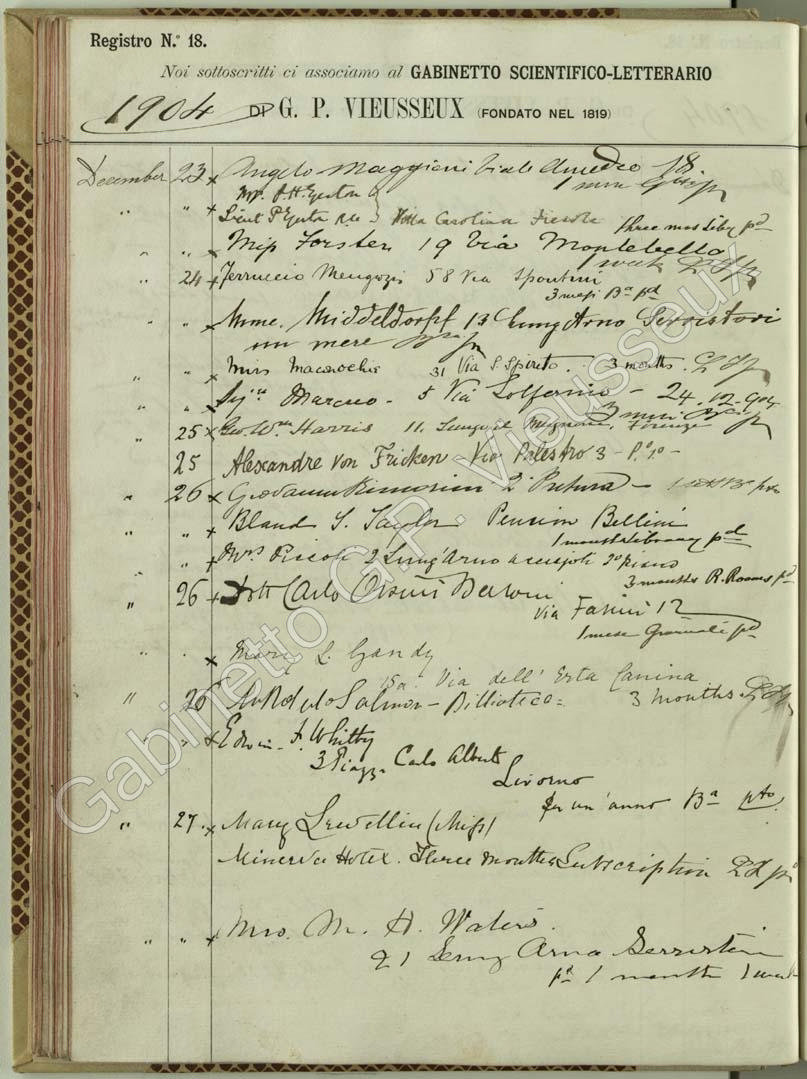 Registro N.º 18.
Noi sottoscritti ci associamo al GABINETTO SCIENTIFICO-LETTERARIO
1904 DI G. P. VIEUSSEUX (FONDATO NEL 1819)
December 23 x Angelo Maggioni Viale Amedeo 18
1 mese
Mr. P. H. Egerton
" + Lieut P Egerton Villa Carolina Fiesole three mos Liby pd
" " Miss Forster 19 Via Montebello
week
" 24 + Ferruccio Mengozzi 58 Via Spontini
3 mesi Ba pd
" " x Mme. Middeldorpf 13 Lung'Arno Serristori
un mese
" " x Miss Macrochie 31 Via S. Spirito. 3 months.
" " x Marcuo - 5 Via Solferino - 24.12.904
3 mesi
25 x Geo. Wm Harris 11. Lungo il Mugnone, Firenze
25 Alexandre von Fricken Via Palestro 3 - Po 1o -
" 26 x Giovanni
" " + Bland S. Taylor Pension Bellini
1 month Library pd
" " + Mrs Piccoli 2 Lung'Arno acciajoli 2o piano
3 months R. Rooms pd
" 26 + Dott Carlo Orsini Baroni
Via Farini 12
1 mese Giornali pd
" " x Mary L. Gandy
15a Via dell' Erta Canina
" 26 x Salmon - Biblioteca = 3 months.
" " x Edwin F. Whitby
3 Piazza Carlo Alberto
Livorno
per un' anno Ba pto
" 27. x Mary Lewellin (Miss)
Minerva Hotel. Three months Subscription
" " x Mrs. M. H. Waters.
21 Lung Arno Serristori
pd 1 month
Gabinetto G. P. Vieusseux